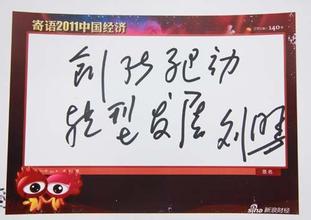 寄语2011中国经济
创新驱动
转型发展 刘明
签名
sina 新浪财经